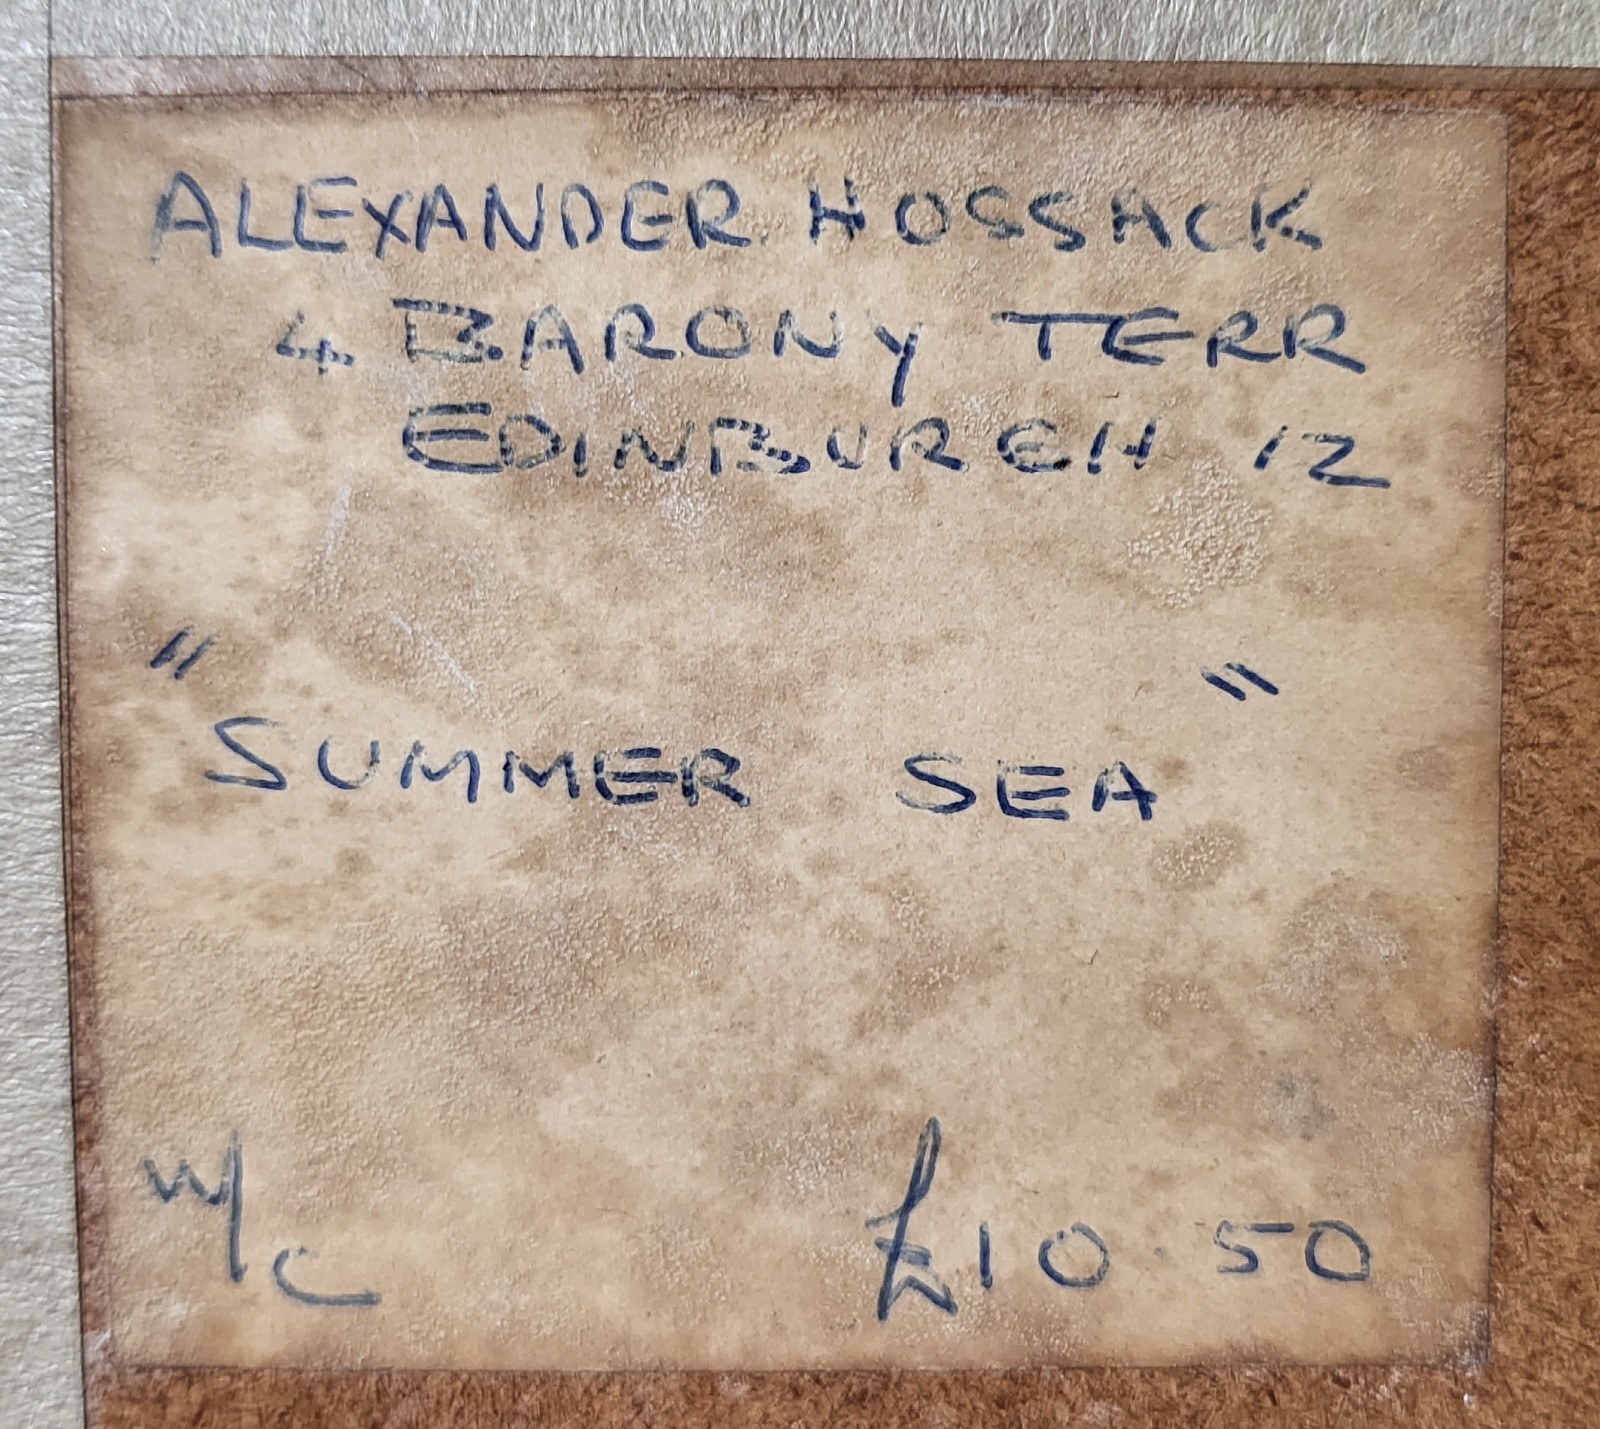 ALEXANDER HOSSACK
4. BARONY TERR
EDINBURGH 12
"SUMMER SEA"
W/C £10.50